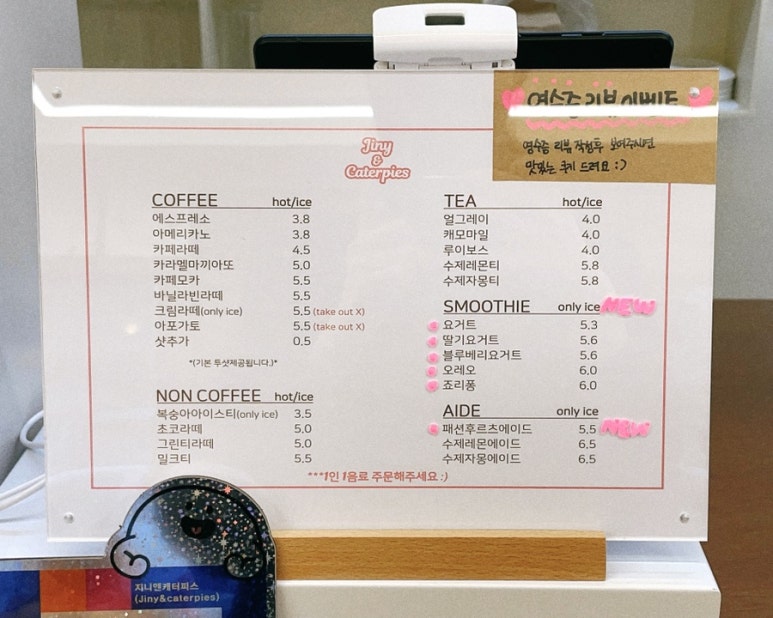 영수증 리뷰 이벤트
영수증 리뷰 작성후 보여주시면
맛있는 쿠키 드려요 :)
Jiny
&
Caterpies
COFFEE hot/ice
에스프레소 3.8
아메리카노 3.8
카페라떼 4.5
카라멜마끼아또 5.0
카페모카 5.5
바닐라빈라떼 5.5
크림라떼(only ice) 5.5 (take out X)
아포가토 5.5 (take out X)
샷추가 0.5
*(기본 투샷제공됩니다.)*
NON COFFEE hot/ice
복숭아아이스티(only ice) 3.5
초코라떼 5.0
그린티라떼 5.0
밀크티 5.5
TEA hot/ice
얼그레이 4.0
캐모마일 4.0
루이보스 4.0
수제레몬티 5.8
수제자몽티 5.8
SMOOTHIE only ice NEW
요거트 5.3
딸기요거트 5.6
블루베리요거트 5.6
오레오 6.0
죠리퐁 6.0
AIDE only ice
패션후르츠에이드 5.5 NEW
수제레몬에이드 6.5
수제자몽에이드 6.5
***1인 1음료 주문해주세요 :)
지니앤케터피스
(Jiny&caterpies)